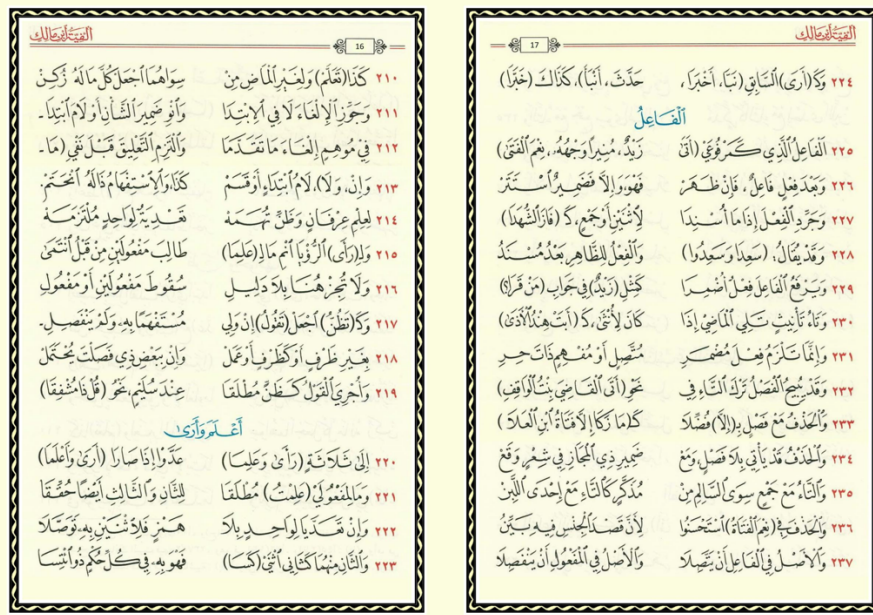 ألفية ابن مالك
16
٢١٠ كَذَا (تَعَلَّمْ) وَلِغَيْرِ الْمَاضِ مِنْ سِوَاهُمَا اجْعَلْ كُلَّ مَا لَهُ زُكِنْ
٢١١ وَجَوِّزِ الْإِلْغَاءَ لَا فِي الِابْتِدَا وَانْوِ ضَمِيرَ الشَّأْنِ أَوْ لَامَ ابْتِدَا-
٢١٢ فِي مُوهِمٍ إِلْغَاءَ مَا تَقَدَّمَا وَالْتُزِمَ التَّعْلِيقُ قَبْلَ نَفْيِ (مَا-
٢١٣ وَإِنْ، وَلَا)، لَامُ ابْتِدَاءٍ أَوْ قَسَمْ كَذَا، وَالِاسْتِفْهَامُ ذَا لَهُ انْحَتَمْ
٢١٤ لِعِلْمِ عِرْفَانٍ وَظَنٍّ تُهَمَهْ تَعْدِيَةٌ لِوَاحِدٍ مُلْتَزَمَهْ
٢١٥ وَلِـ(رَأَى) الرُّؤْيَا انْمِ مَا لِـ(عَلِمَا) طَالِبَ مَفْعُولَيْنِ مِنْ قَبْلُ انْتَمَى
٢١٦ وَلَا تُجِزْ هُنَا بِلَا دَلِيلِ سُقُوطَ مَفْعُولَيْنِ أَوْ مَفْعُولِ
٢١٧ وَكَـ(تَظُنُّ) اجْعَلْ (تَقُولُ) إِنْ وَلِي مُسْتَفْهَمًا بِهِ، وَلَمْ يَنْفَصِلِ-
٢١٨ بِغَيْرِ ظَرْفٍ أَوْ كَظَرْفٍ أَوْ عَمَلْ وَإِنْ بِبَعْضِ ذِي فَصَلْتَ يُحْتَمَلْ
٢١٩ وَأُجْرِيَ الْقَوْلُ كَظَنٍّ مُطْلَقَا عِنْدَ سُلَيْمٍ، نَحْوُ (قُلْ ذَا مُشْفِقَا)
أَعْلَمَ وَأَرَى
٢٢٠ إِلَى ثَلَاثَةٍ (رَأَى وَعَلِمَا) عَدَّوْا إِذَا صَارَا (أَرَى وَأَعْلَمَا)
٢٢١ وَمَا لِمَفْعُولَيْ (عَلِمْتُ) مُطْلَقَا لِلثَّانِ وَالثَّالِثِ أَيْضًا حُقِّقَا
٢٢٢ وَإِنْ تَعَدَّيَا لِوَاحِدٍ بِلَا هَمْزٍ فَلِاثْنَيْنِ بِهِ تَوَصَّلَا
٢٢٣ وَالثَّانِ مِنْهُمَا كَثَانِي اثْنَيْ (كَسَا) فَهْوَ بِهِ فِي كُلِّ حُكْمٍ ذُو ائْتِسَا
ألفية ابن مالك
17
٢٢٤ وَكَـ(أَرَى) السَّابِقِ (نَبَّا، أَخْبَرَا، حَدَّثَ، أَنْبَأَ)، كَذَاكَ (خَبَّرَا)
الْفَاعِلُ
٢٢٥ الْفَاعِلُ الَّذِي كَمَرْفُوعَيْ (أَتَى زَيْدٌ، مُنِيرًا وَجْهُهُ، نِعْمَ الْفَتَى)
٢٢٦ وَبَعْدَ فِعْلٍ فَاعِلٌ، فَإِنْ ظَهَرْ فَهْوَ، وَإِلَّا فَضَمِيرٌ اسْتَتَرْ
٢٢٧ وَجَرِّدِ الْفِعْلَ إِذَا مَا أُسْنِدَا لِاثْنَيْنِ أَوْ جَمْعٍ، كَـ(فَازَ الشُّهَدَا)
٢٢٨ وَقَدْ يُقَالُ: (سَعِدَا وَسَعِدُوا) وَالْفِعْلُ لِلظَّاهِرِ بَعْدُ مُسْنَدُ
٢٢٩ وَيَرْفَعُ الْفَاعِلَ فِعْلٌ أُضْمِرَا كَمِثْلِ (زَيْدٌ) فِي جَوَابِ (مَنْ قَرَا؟)
٢٣٠ وَتَاءُ تَأْنِيثٍ تَلِي الْمَاضِيْ إِذَا كَانَ لِأُنْثَى، كَـ(أَبَتْ هِنْدُ الْأَذَى)
٢٣١ وَإِنَّمَا تَلْزَمُ فِعْلَ مُضْمَرِ مُتَّصِلٍ أَوْ مُفْهِمٍ ذَاتَ حِرِ
٢٣٢ وَقَدْ يُبِيحُ الْفَصْلُ تَرْكَ التَّاءِ فِي نَحْوِ (أَتَى الْقَاضِيَ بِنْتُ الْوَاقِفِ)
٢٣٣ وَالْحَذْفُ مَعْ فَصْلٍ بِـ(إِلَّا) فُضِّلَا كَـ(مَا زَكَا إِلَّا فَتَاةُ ابْنِ الْعَلَا)
٢٣٤ وَالْحَذْفُ قَدْ يَأْتِي بِلَا فَصْلٍ، وَمَعْ ضَمِيرِ ذِي الْمَجَازِ فِي شِعْرٍ وَقَعْ
٢٣٥ وَالتَّاءُ مَعْ جَمْعٍ سِوَى السَّالِمِ مِنْ مُذَكَّرٍ كَالتَّاءِ مَعْ إِحْدَى اللَّبِنْ
٢٣٦ وَالْحَذْفَ فِي (نِعْمَ الْفَتَاةُ) اسْتَحْسَنُوا لِأَنَّ قَصْدَ الْجِنْسِ فِيهِ بَيِّنُ
٢٣٧ وَالْأَصْلُ فِي الْفَاعِلِ أَنْ يَتَّصِلَا وَالْأَصْلُ فِي الْمَفْعُولِ أَنْ يَنْفَصِلَا